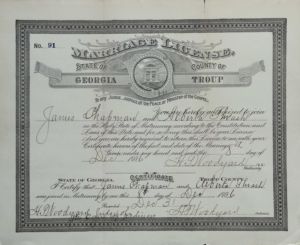 MARRIAGE LICENSE.
No. 91
STATE OF COUNTY OF
GEORGIA TROUP
To any Judge, Justice of the Peace or Minister of the Gospel:
You are hereby authorized to join
James Chapman and Alberta
in the Holy State of Matrimony, according to the Constitution and
Laws of this State and for so doing this shall be your License
And you are hereby required to return this License to me with your
Certificate hereon of the fact and date of the Marriage
Given under my hand and
Dec H. Woodyard
CERTIFICATE
STATE OF GEORGIA. TROUP COUNTY:
I Certify that James Chapman and Alberta
were joined in Matrimony by me this day of Dec
Recorded Dec
H. Woodyard H Woodyard